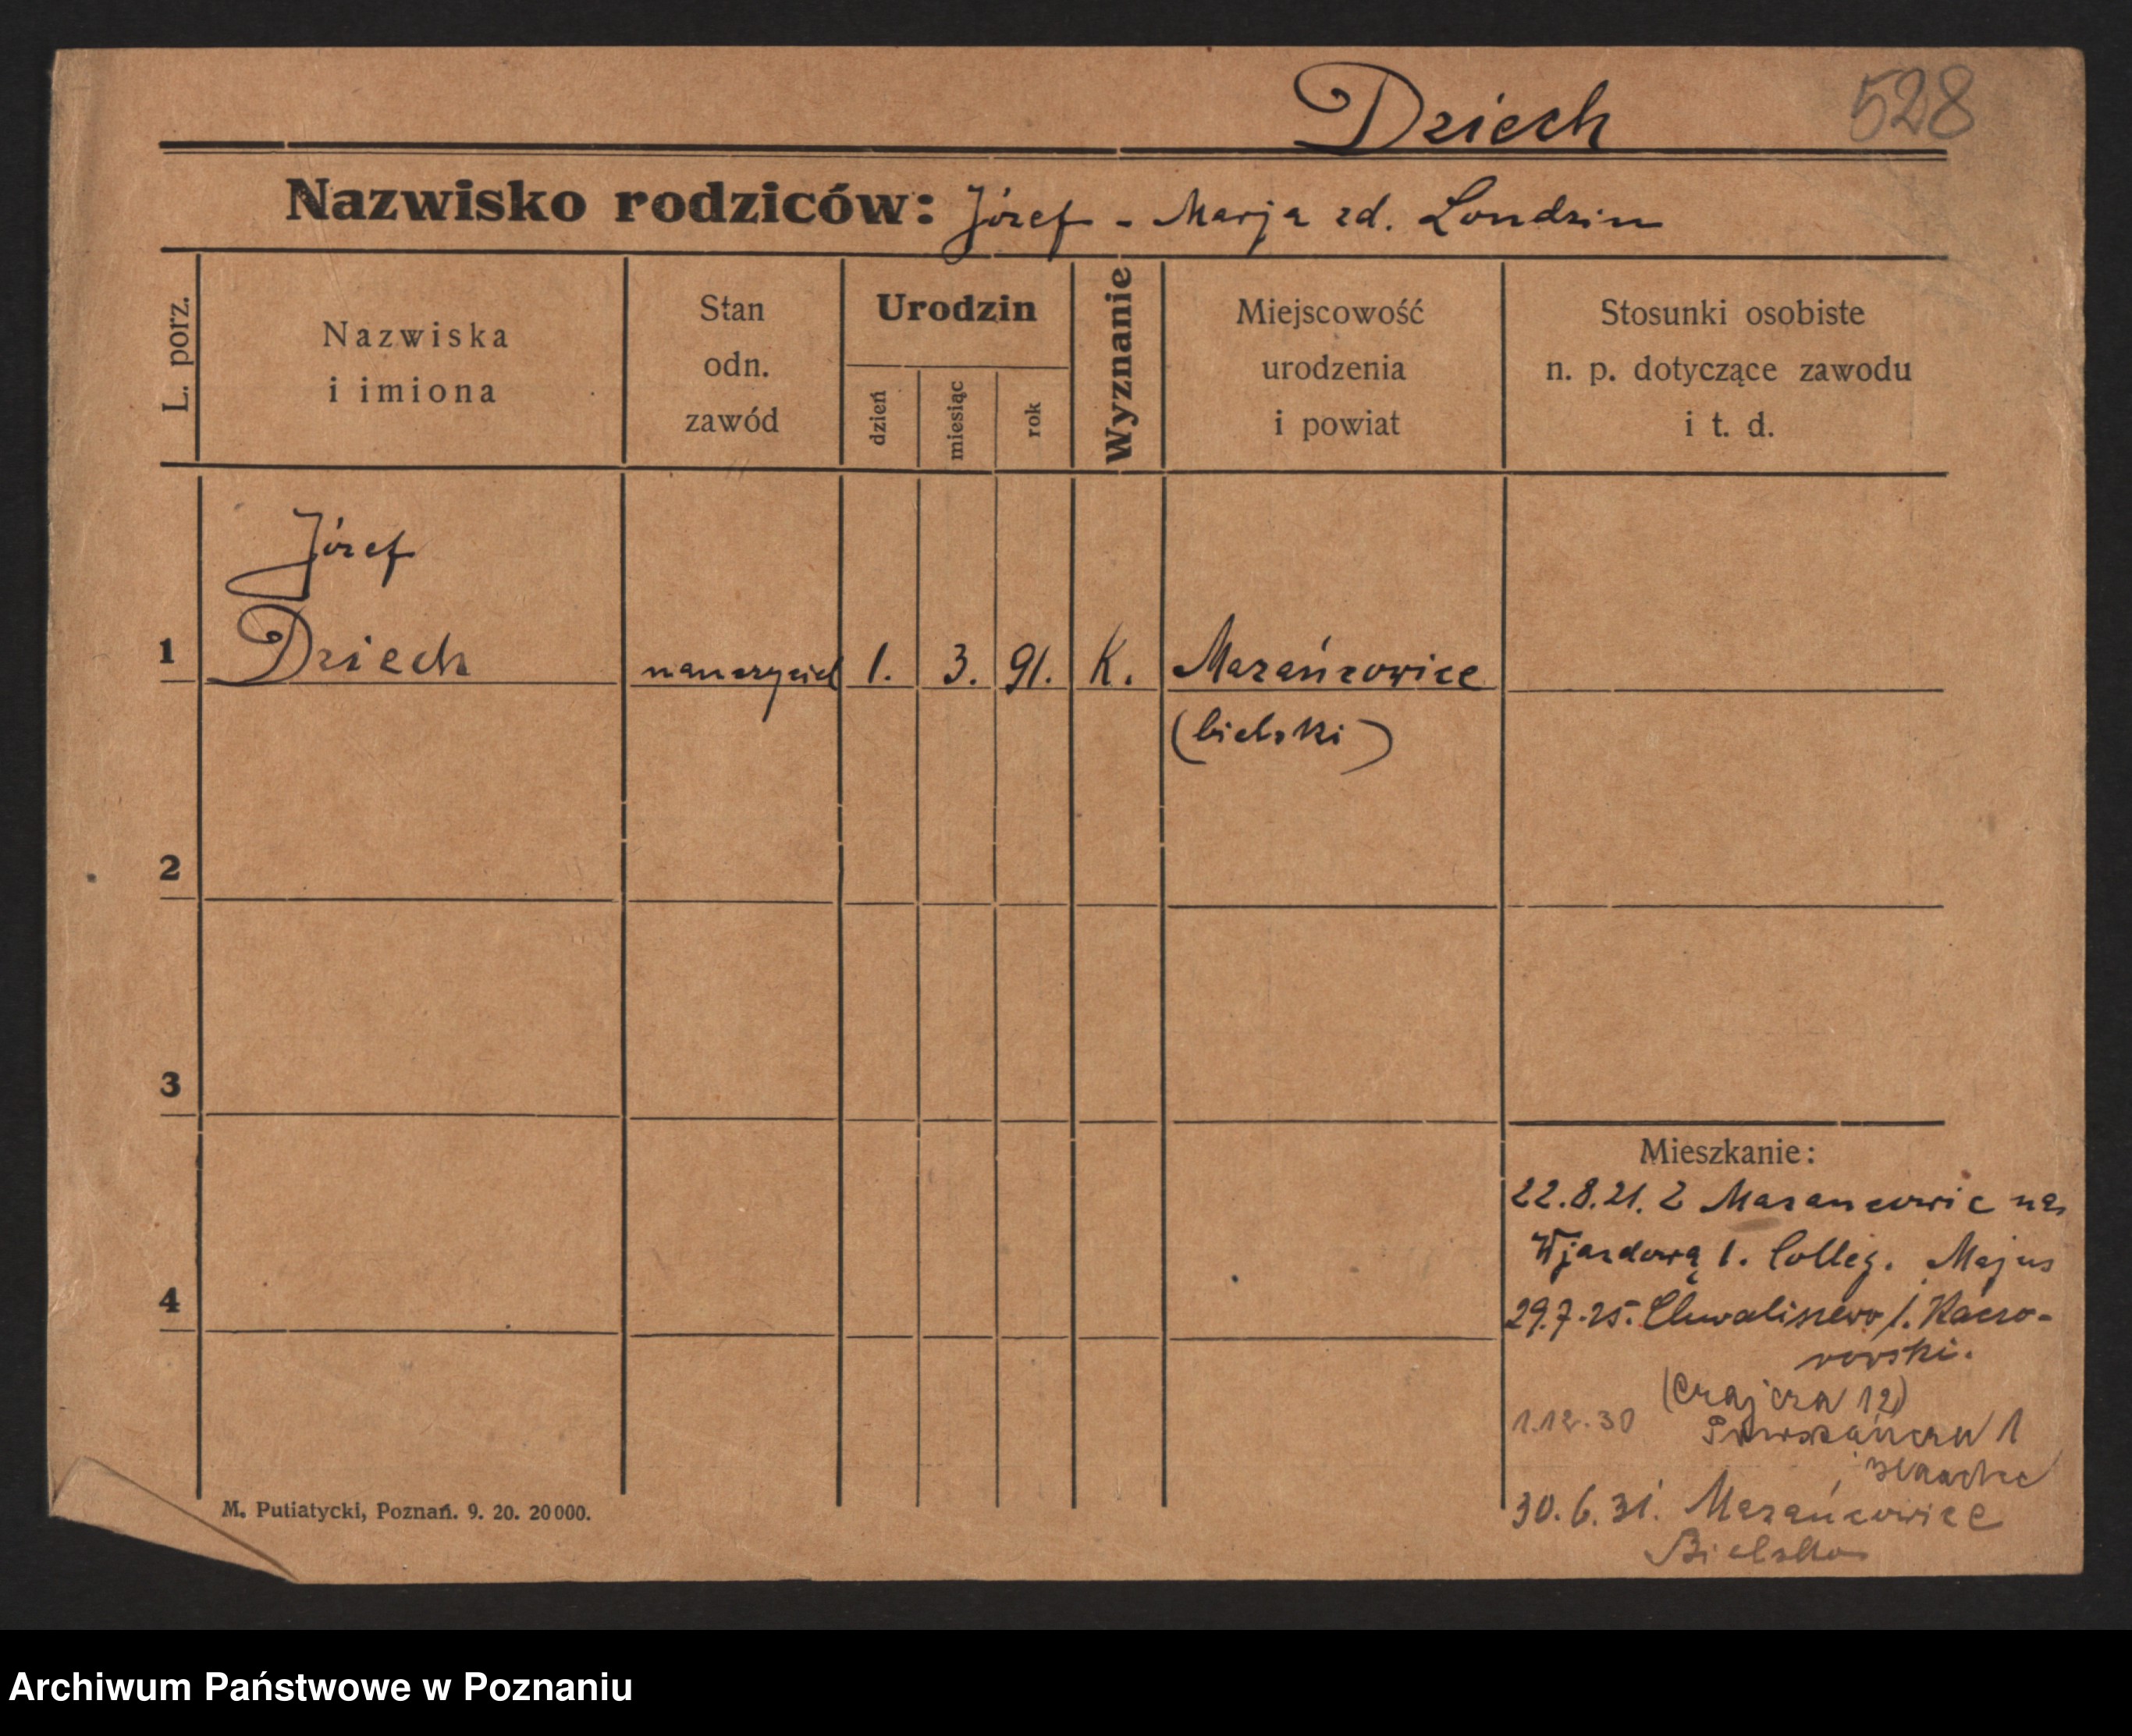 Dziech 528
Nazwisko rodziców: Józef - Marja zd. Londzin
L. porz.
Nazwiska
i imiona
Stan
odn.
zawód
Urodzin
dzień
miesiąc
rok
Wyznanie
Miejscowość
urodzenia
i powiat
Stosunki osobiste
n. p. dotyczące zawodu
i t. d.
Józef
1 Dziech nauczyciel 1. 3. 91. K. Mazańcowice
(bielski)
2
3
Mieszkanie:
22.8.21. Z Mazancowic na
Wjazdową 1. Colleg. Majus
4
29.7.25. Chwaliszewo 1. Kaczo-
rowski.
(Czajcza 12)
1.12.30
30.6.31. Mazańcowice
Bielsko
M. Putiatycki, Poznań. 9. 20. 20000.
Archiwum Państwowe w Poznaniu